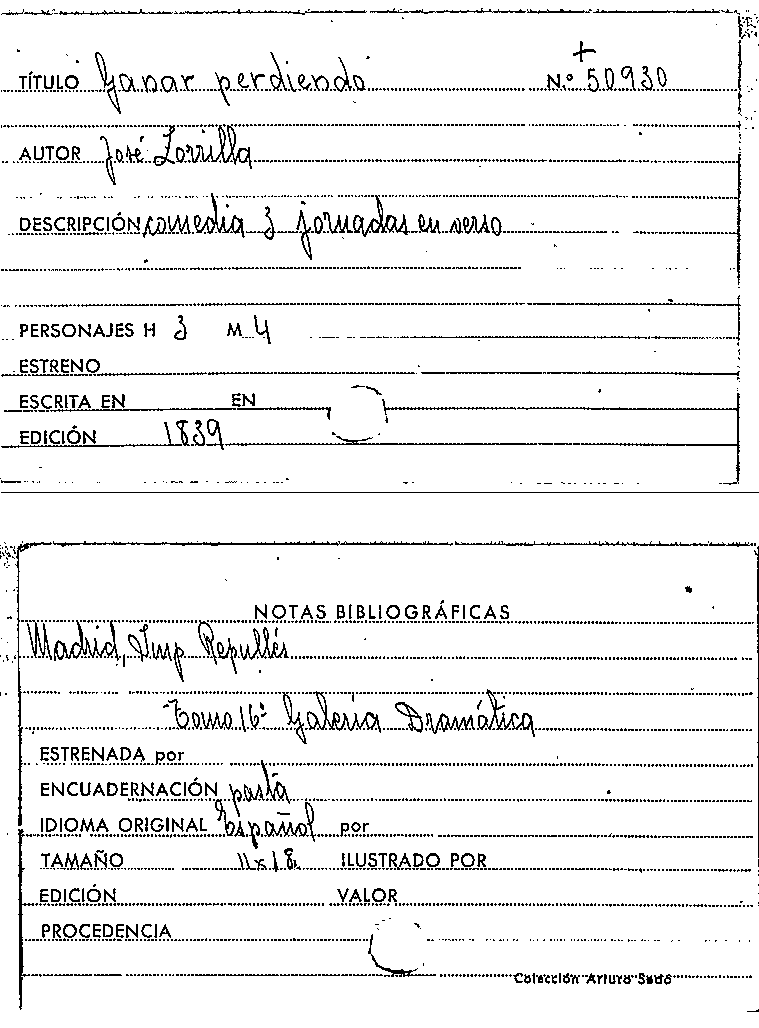 +
TÍTULO Ganar perdiendo N.º 50930
AUTOR José Zorrilla
DESCRIPCIÓN comedia 3 jornadas en verso
PERSONAJES H 3 M 4
ESTRENO
ESCRITA EN EN
EDICIÓN 1839
NOTAS BIBLIOGRÁFICAS
Madrid, Imp Repullés
Tomo 16º Galería Dramática
ESTRENADA por
ENCUADERNACIÓN pasta
IDIOMA ORIGINAL Español por
TAMAÑO 11x18 ILUSTRADO POR
EDICIÓN VALOR
PROCEDENCIA
Colección Arturo Sedó